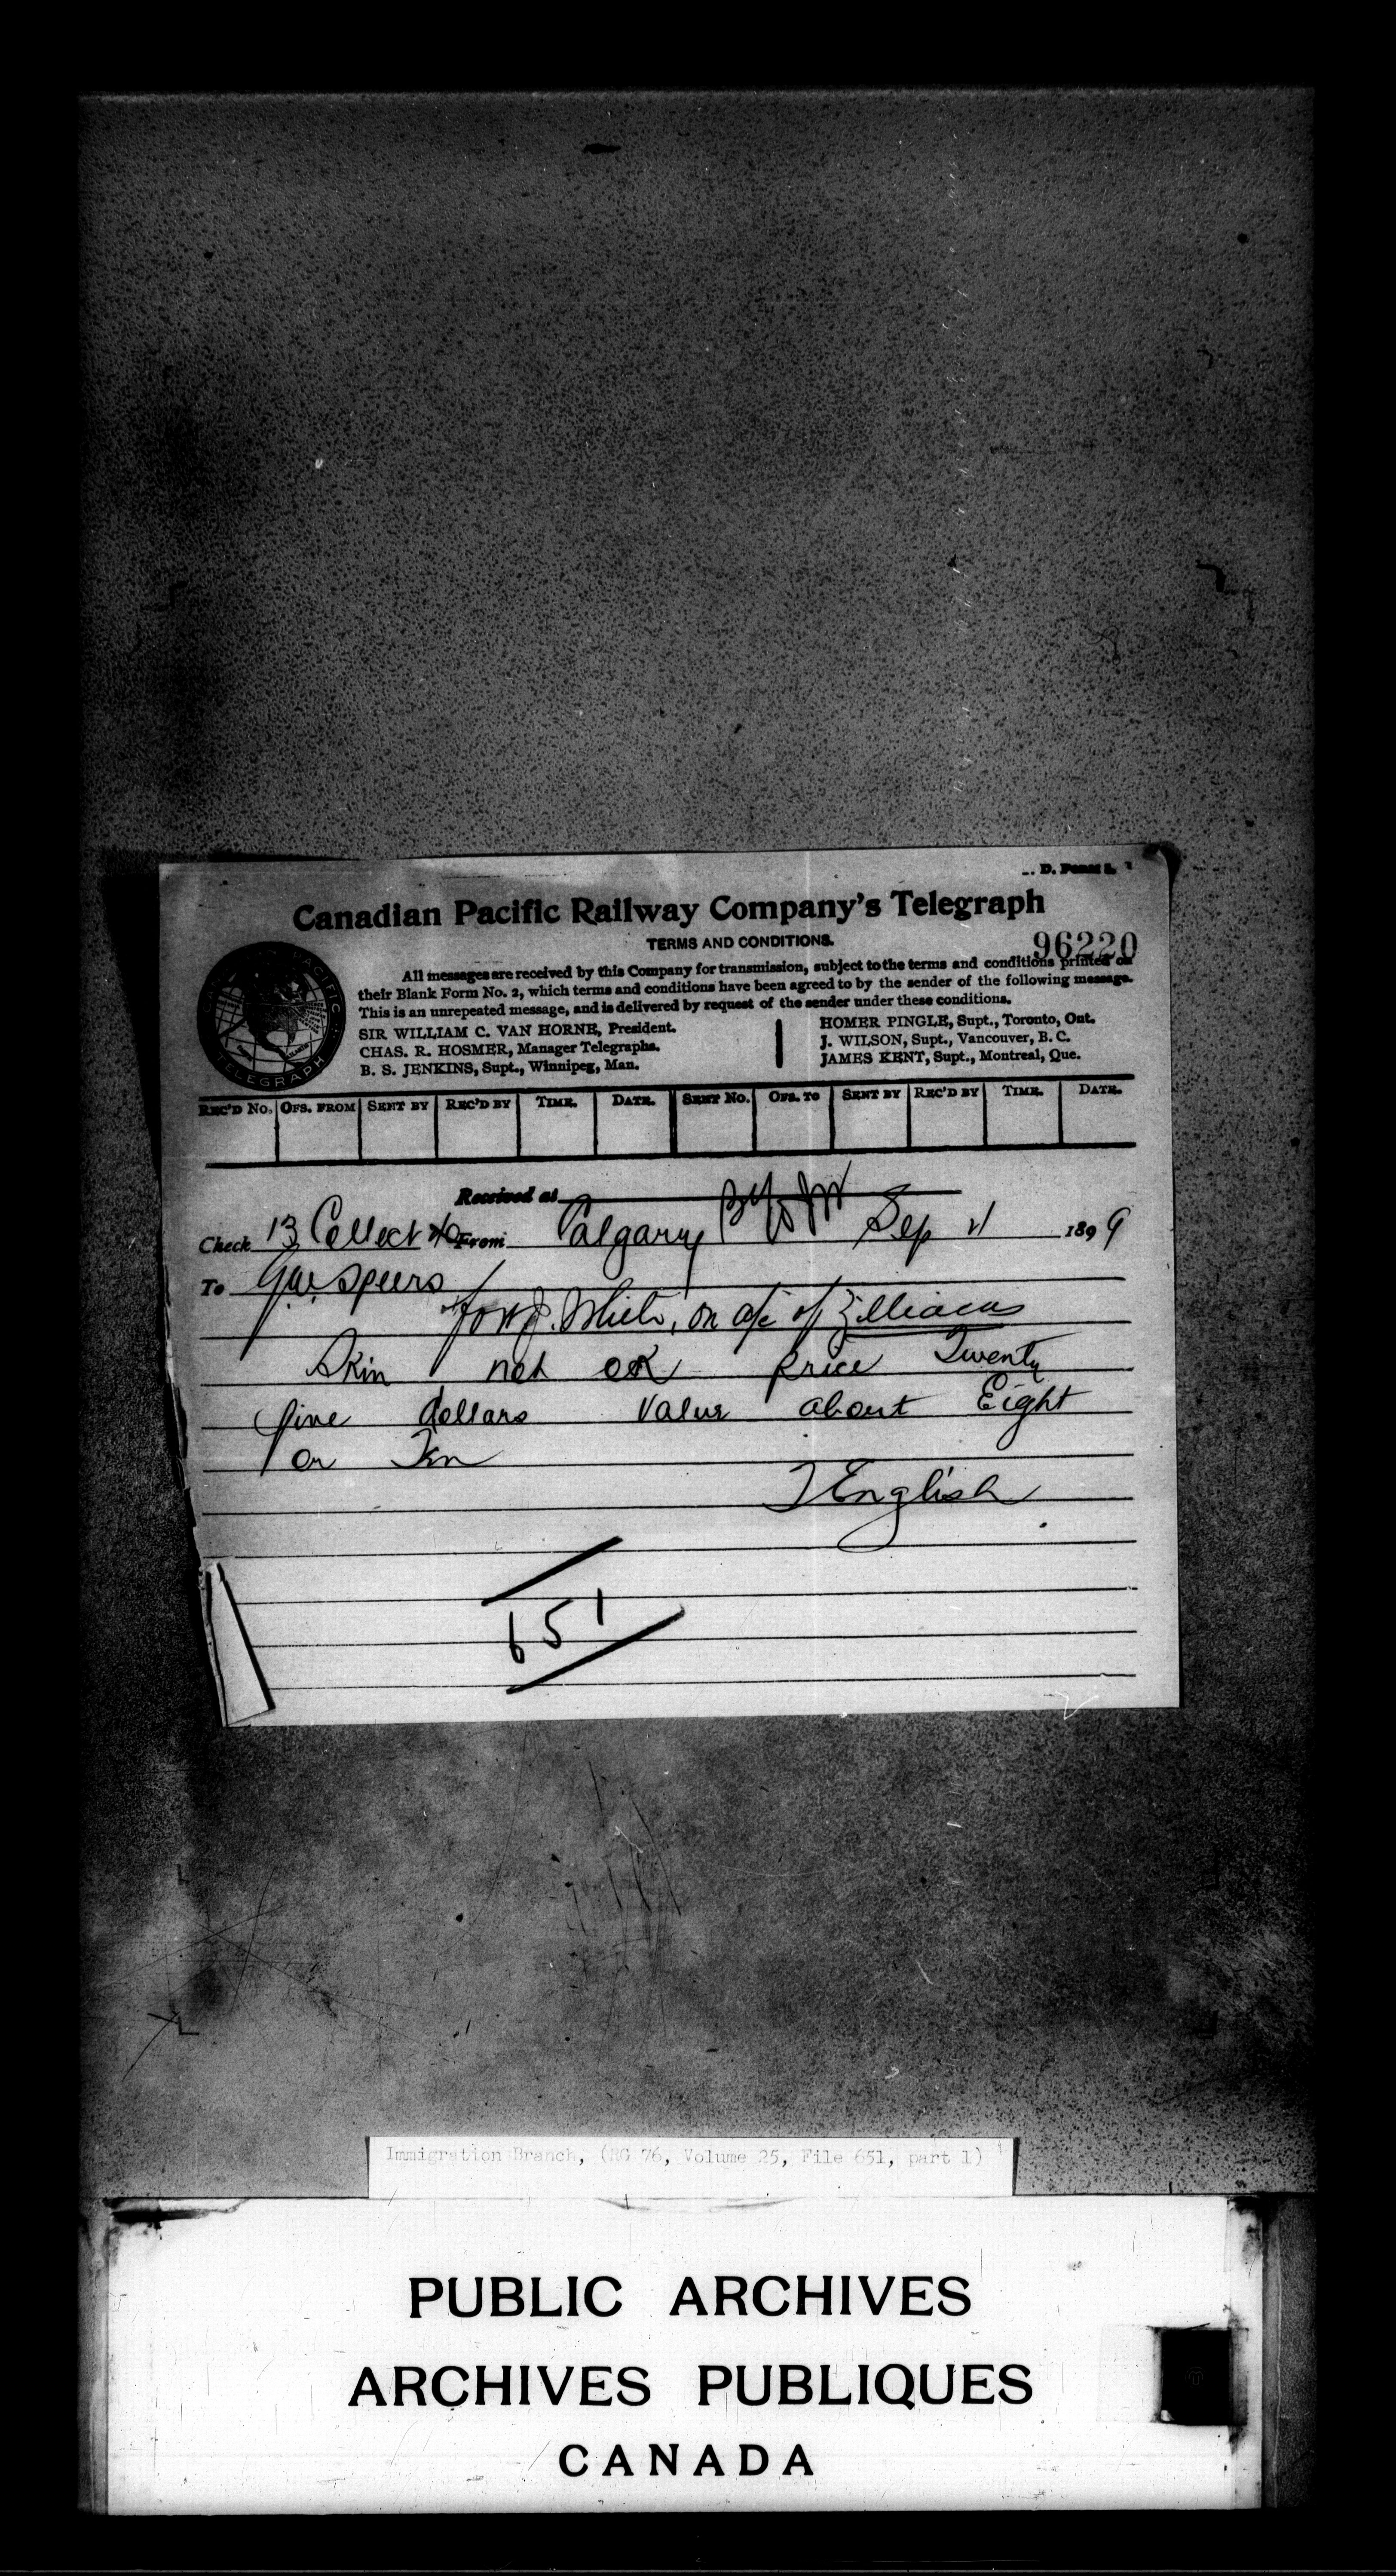 Canadian Pacific Railway Company's Telegraph
TERMS AND CONDITIONS.
96220
All messages are received by this Company for transmission, subject to the terms and conditions printed on
their Blank Form No. 2, which terms and conditions have been agreed to by the sender of the following message.
This is an unrepeated message, and is delivered by request of the sender under these conditions.
SIR WILLIAM C. VAN HORNE, President.
CHAS. R. HOSMER, Manager Telegraphs.
B. S. JENKINS, Supt., Winnipeg, Man.
HOMER PINGLE, Supt., Toronto, Ont.
J. WILSON, Supt., Vancouver, B. C.
JAMES KENT, Supt., Montreal, Que.
TELEGRAPH
REC'D No. OFS. FROM SENT BY REC'D BY TIME. DATE. SENT No. OFS. TO SENT BY REC'D BY TIME. DATE.
Received at
Check 13 Collect From Calgary Sep 1899
To G.W. Speers
for W.J. White, on a/c of Zilliacus
Skin not OK price Twenty
five dollars Value about Eight
or Ten
J English
651
Immigration Branch, (RG 76, Volume 25, File 651, part 1)
PUBLIC ARCHIVES
ARCHIVES PUBLIQUES
CANADA